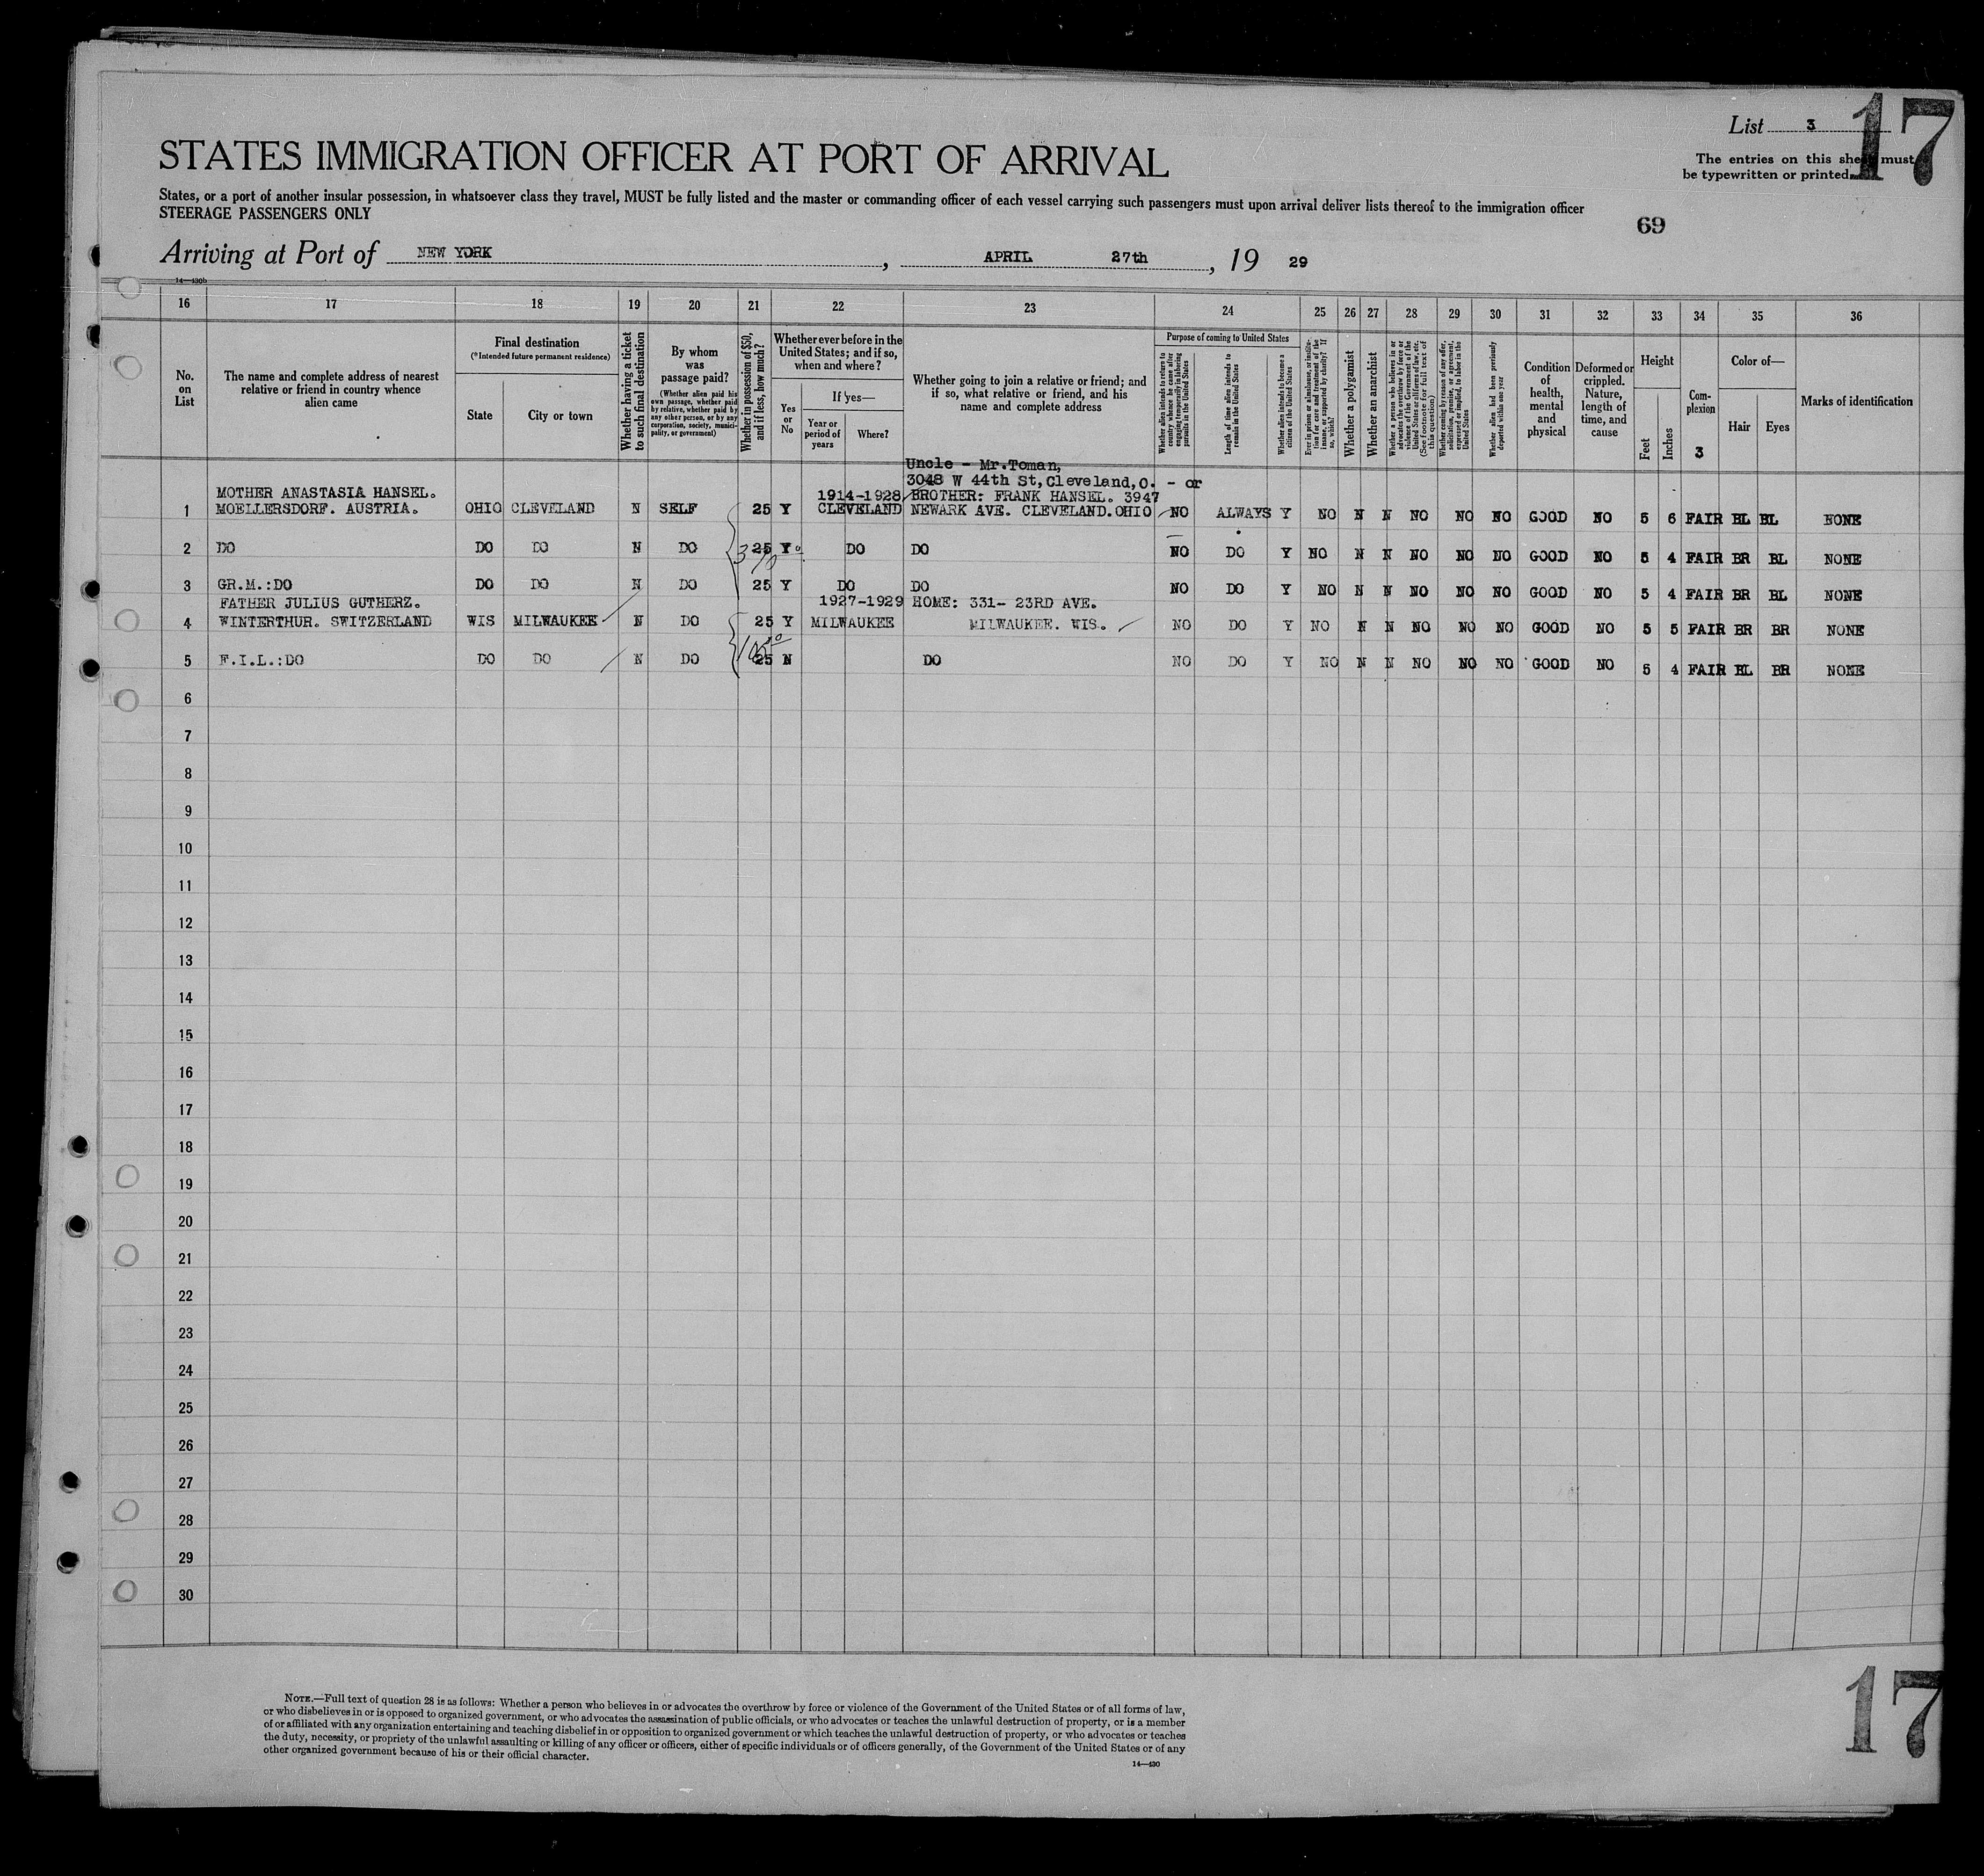 List 3
17
STATES IMMIGRATION OFFICER AT PORT OF ARRIVAL
The entries on this sheet must
be typewritten or printed.
States, or a port of another insular possession, in whatsoever class they travel, MUST be fully listed and the master or commanding officer of each vessel carrying such passengers must upon arrival deliver lists thereof to the immigration officer
STEERAGE PASSENGERS ONLY
69
Arriving at Port of NEW YORK, APRIL 27th, 19 29
14—430b
16 17 18 19 20 21 22 23 24 25 26 27 28 29 30 31 32 33 34 35 36
No.
on
List
The name and complete address of nearest
relative or friend in country whence
alien came
Final destination
(*Intended future permanent residence)
State
City or town
Whether having a ticket
to such final destination
By whom
was
passage paid?
(Whether alien paid his
own passage, whether paid
by relative, whether paid by
any other person, or by any
corporation, society, munici-
pality, or government)
Whether in possession of $50,
and if less, how much?
Whether ever before in the
United States; and if so,
when and where?
Yes
or
No
If yes—
Year or
period of
years
Where?
Whether going to join a relative or friend; and
if so, what relative or friend, and his
name and complete address
Purpose of coming to United States
Whether alien intends to return to
country whence he came after
engaging temporarily in laboring
pursuits in the United States
Length of time alien intends to
remain in the United States
Whether alien intends to become a
citizen of the United States
Ever in prison or almshouse, or institu-
tion for care and treatment of the
insane, or supported by charity? If
so, which?
Whether a polygamist
Whether an anarchist
Whether a person who believes in or
advocates the overthrow by force or
violence of the Government of the
United States or all forms of law, etc.
(See footnote for full text of
this question)
Whether coming by reason of any offer,
solicitation, promise, or agreement,
expressed or implied, to labor in the
United States
Whether alien had been previously
deported within one year
Condition
of
health,
mental
and
physical
Deformed or
crippled.
Nature,
length of
time, and
cause
Height
Feet
Inches
Com-
plexion
3
Color of—
Hair
Eyes
Marks of identification
Uncle - Mr.Toman,
3048 W 44th St,Cleveland,O. - or
MOTHER ANASTASIA HANSEL. 1914-1928 BROTHER: FRANK HANSEL. 3947
1 MOELLERSDORF. AUSTRIA. OHIO CLEVELAND N SELF 25 Y CLEVELAND NEWARK AVE. CLEVELAND.OHIO NO ALWAYS Y NO N N NO NO NO GOOD NO 5 6 FAIR BL BL NONE
2 DO DO DO N DO 25 Y DO DO NO DO Y NO N N NO NO NO GOOD NO 5 4 FAIR BR BL NONE
3 GR.M.:DO DO DO N DO 25 Y DO DO NO DO Y NO N N NO NO NO GOOD NO 5 4 FAIR BR BL NONE
FATHER JULIUS GUTHERZ. 1927-1929 HOME: 331- 23RD AVE.
4 WINTERTHUR. SWITZERLAND WIS MILWAUKEE N DO 25 Y MILWAUKEE MILWAUKEE. WIS. NO DO Y NO N N NO NO NO GOOD NO 5 5 FAIR BR BR NONE
5 F.I.L.:DO DO DO N DO 25 N DO NO DO Y NO N N NO NO NO GOOD NO 5 4 FAIR BL BR NONE
6
7
8
9
10
11
12
13
14
15
16
17
18
19
20
21
22
23
24
25
26
27
28
29
30
NOTE.—Full text of question 28 is as follows: Whether a person who believes in or advocates the overthrow by force or violence of the Government of the United States or of all forms of law,
or who disbelieves in or is opposed to organized government, or who advocates the assassination of public officials, or who advocates or teaches the unlawful destruction of property, or is a member
of or affiliated with any organization entertaining and teaching disbelief in or opposition to organized government or which teaches the unlawful destruction of property, or who advocates or teaches
the duty, necessity, or propriety of the unlawful assaulting or killing of any officer or officers, either of specific individuals or of officers generally, of the Government of the United States or of any
other organized government because of his or their official character.
14—430
17